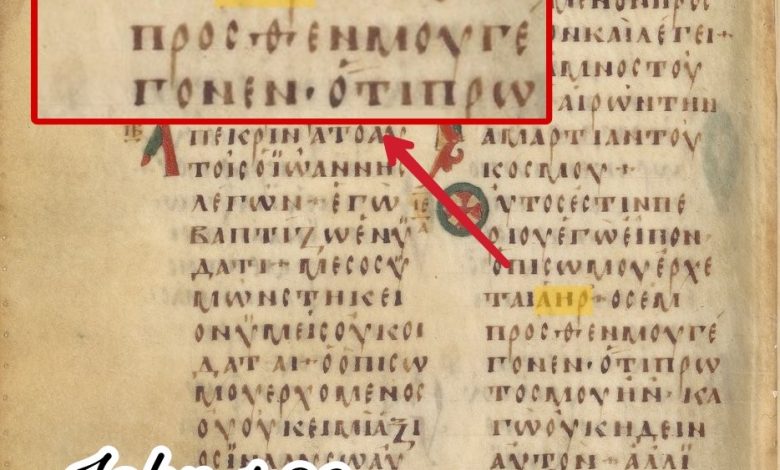 ΠΡΟϹΘΕΝΜΟΥΓΕ
ΓΟΝΕΝ·ὉΤΙΠΡΩ
ΑΠΕΚΡΙΝΑΤΟΑΥ
ΤΟΙϹΟΪΩΑΝΝΗϹ
ΛΕΓΩΝ·ΕΓΩ
ΒΑΠΤΙΖΩΕΝΫ
ΔΑΤΙ·ΜΕϹΟϹΥ
ΜΩΝϹΤΗΚΕΙ
ΟΝΫΜΕΙϹΟΥΚΟΙ
ΔΑΤΑΙ·ΟΟΠΙϹΩ
ΜΟΥΕΡΧΟΜΕΝΟϹ
ΟΥΟΥΚΕΙΜΙΑΞΙ
ΟΝΚΑΙΛΕΓΕΙ·
ΑΜΝΟϹΤΟΥ
ΑΙΡΩΝΤΗΝ
ΑΜΑΡΤΙΑΝΤΟΥ
ΚΟϹΜΟΥ·
ΟΥΤΟϹΕϹΤΙΝΠΕ
ΡΙΟΥΕΓΩΕΙΠΟΝ·
ΟΠΙϹΩΜΟΥΕΡΧΕ
ΤΑΙΑΝΗΡ·ΟϹΕΜ
ΠΡΟϹΘΕΝΜΟΥΓΕ
ΓΟΝΕΝ·ΟΤΙΠΡΩ
ΤΟϹΜΟΥΗΝ·ΚΑ
ΓΩΟΥΚΗΔΕΙΝ